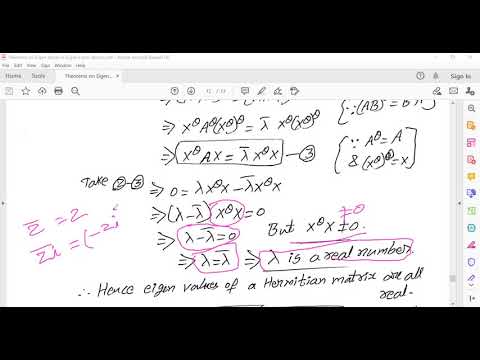 Theorems on Eigen
File Edit View Sign Window Help
Home Tools Theorems on Eigen... × Sign In
⇒ X^θ A^θ (X^θ)^θ = λ̄ X^θ (X^θ)^θ
⇒ X^θ A X = λ̄ X^θ X —③ {∵ A^θ = A
& (X^θ)^θ = X}
Take ②-③ ⇒ 0 = λ X^θ X - λ̄ X^θ X
⇒ (λ - λ̄) X^θ X = 0
⇒ λ - λ̄ = 0 But X^θ X ≠ 0.
⇒ λ = λ̄ ⇒ λ is a real number.
∴ Hence eigen values of a Hermitian matrix are all
real.
2̄ = 2
2̄i = (-2i
≠0